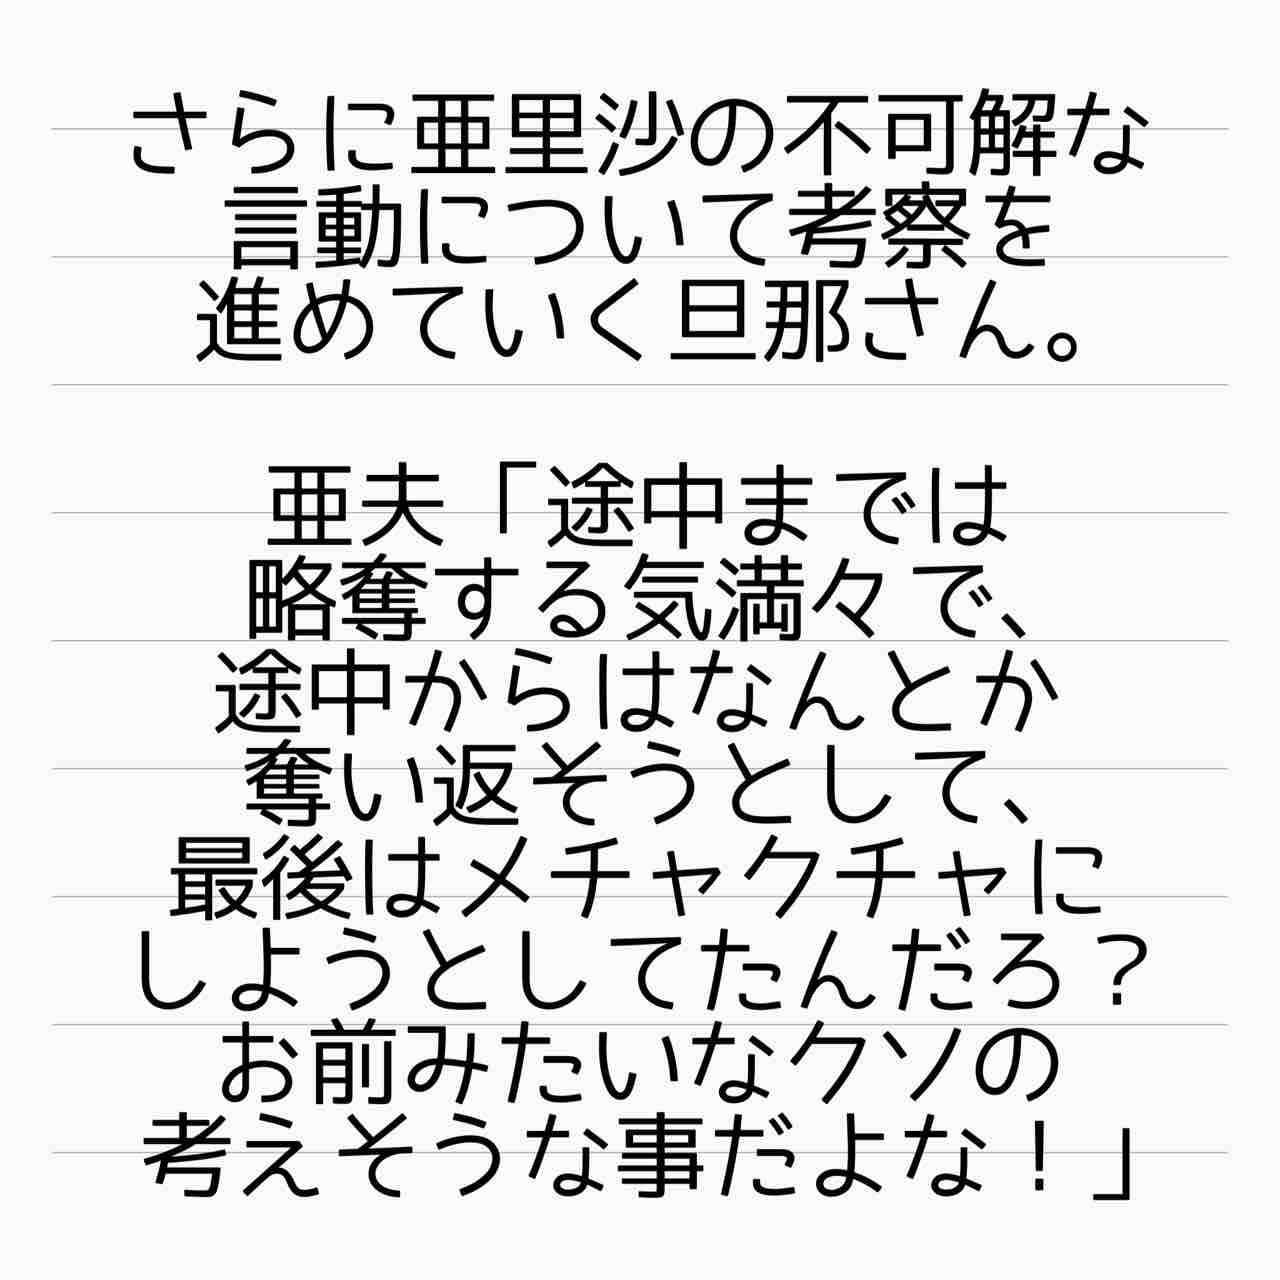 さらに亜里沙の不可解な
言動について考察を
進めていく旦那さん。
亜夫「途中までは
略奪する気満々で、
途中からはなんとか
奪い返そうとして、
最後はメチャクチャに
しようとしてたんだろ？
お前みたいなクソの
考えそうな事だよな！」